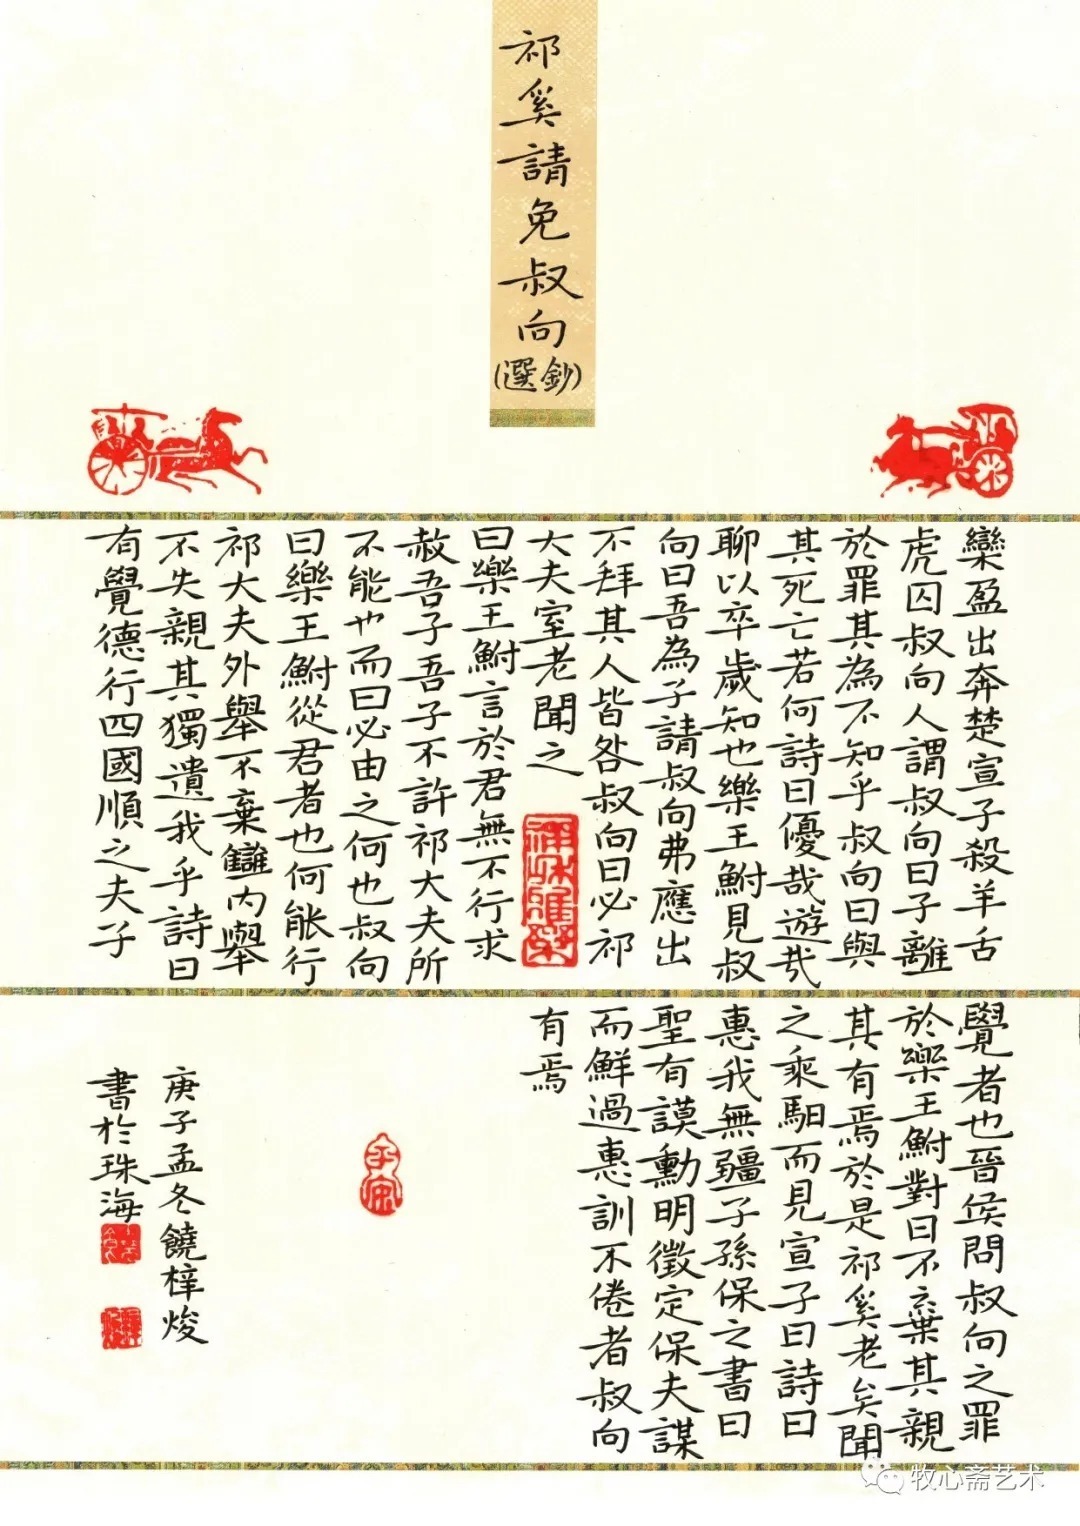 祁奚請免叔向
(選鈔)
欒盈出奔楚宣子殺羊舌
虎囚叔向人謂叔向曰子離
於罪其為不知乎叔向曰與
其死亡若何詩曰優哉遊哉
聊以卒歲知也樂王鮒見叔
向曰吾為子請叔向弗應出
不拜其人皆咎叔向曰必祁
大夫室老聞之
曰樂王鮒言於君無不行求
赦吾子吾子不許祁大夫所
不能也而曰必由之何也叔向
曰樂王鮒從君者也何能行
祁大夫外舉不棄讎內舉
不失親其獨遺我乎詩曰
有覺德行四國順之夫子
覺者也晉侯問叔向之罪
於樂王鮒對曰不棄其親
其有焉於是祁奚老矣聞
之乘馹而見宣子曰詩曰
惠我無疆子孫保之書曰
聖有謨勳明徵定保夫謀
而鮮過惠訓不倦者叔向
有焉
庚子孟冬饒梓焌
書於珠海
牧心斋艺术